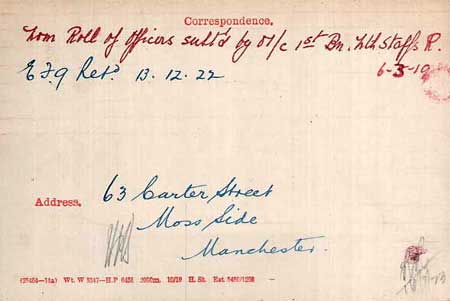 Correspondence.
Nom Roll of Officers subtd by O/c 1st Bn. Nth Staffs R.
6-3-19
E F 9 Retd 13.12.22
Address.
63 Carter Street
Moss Side
Manchester.
Wt. W 5347—H.P 6456 2000m. 10/19 H. St.